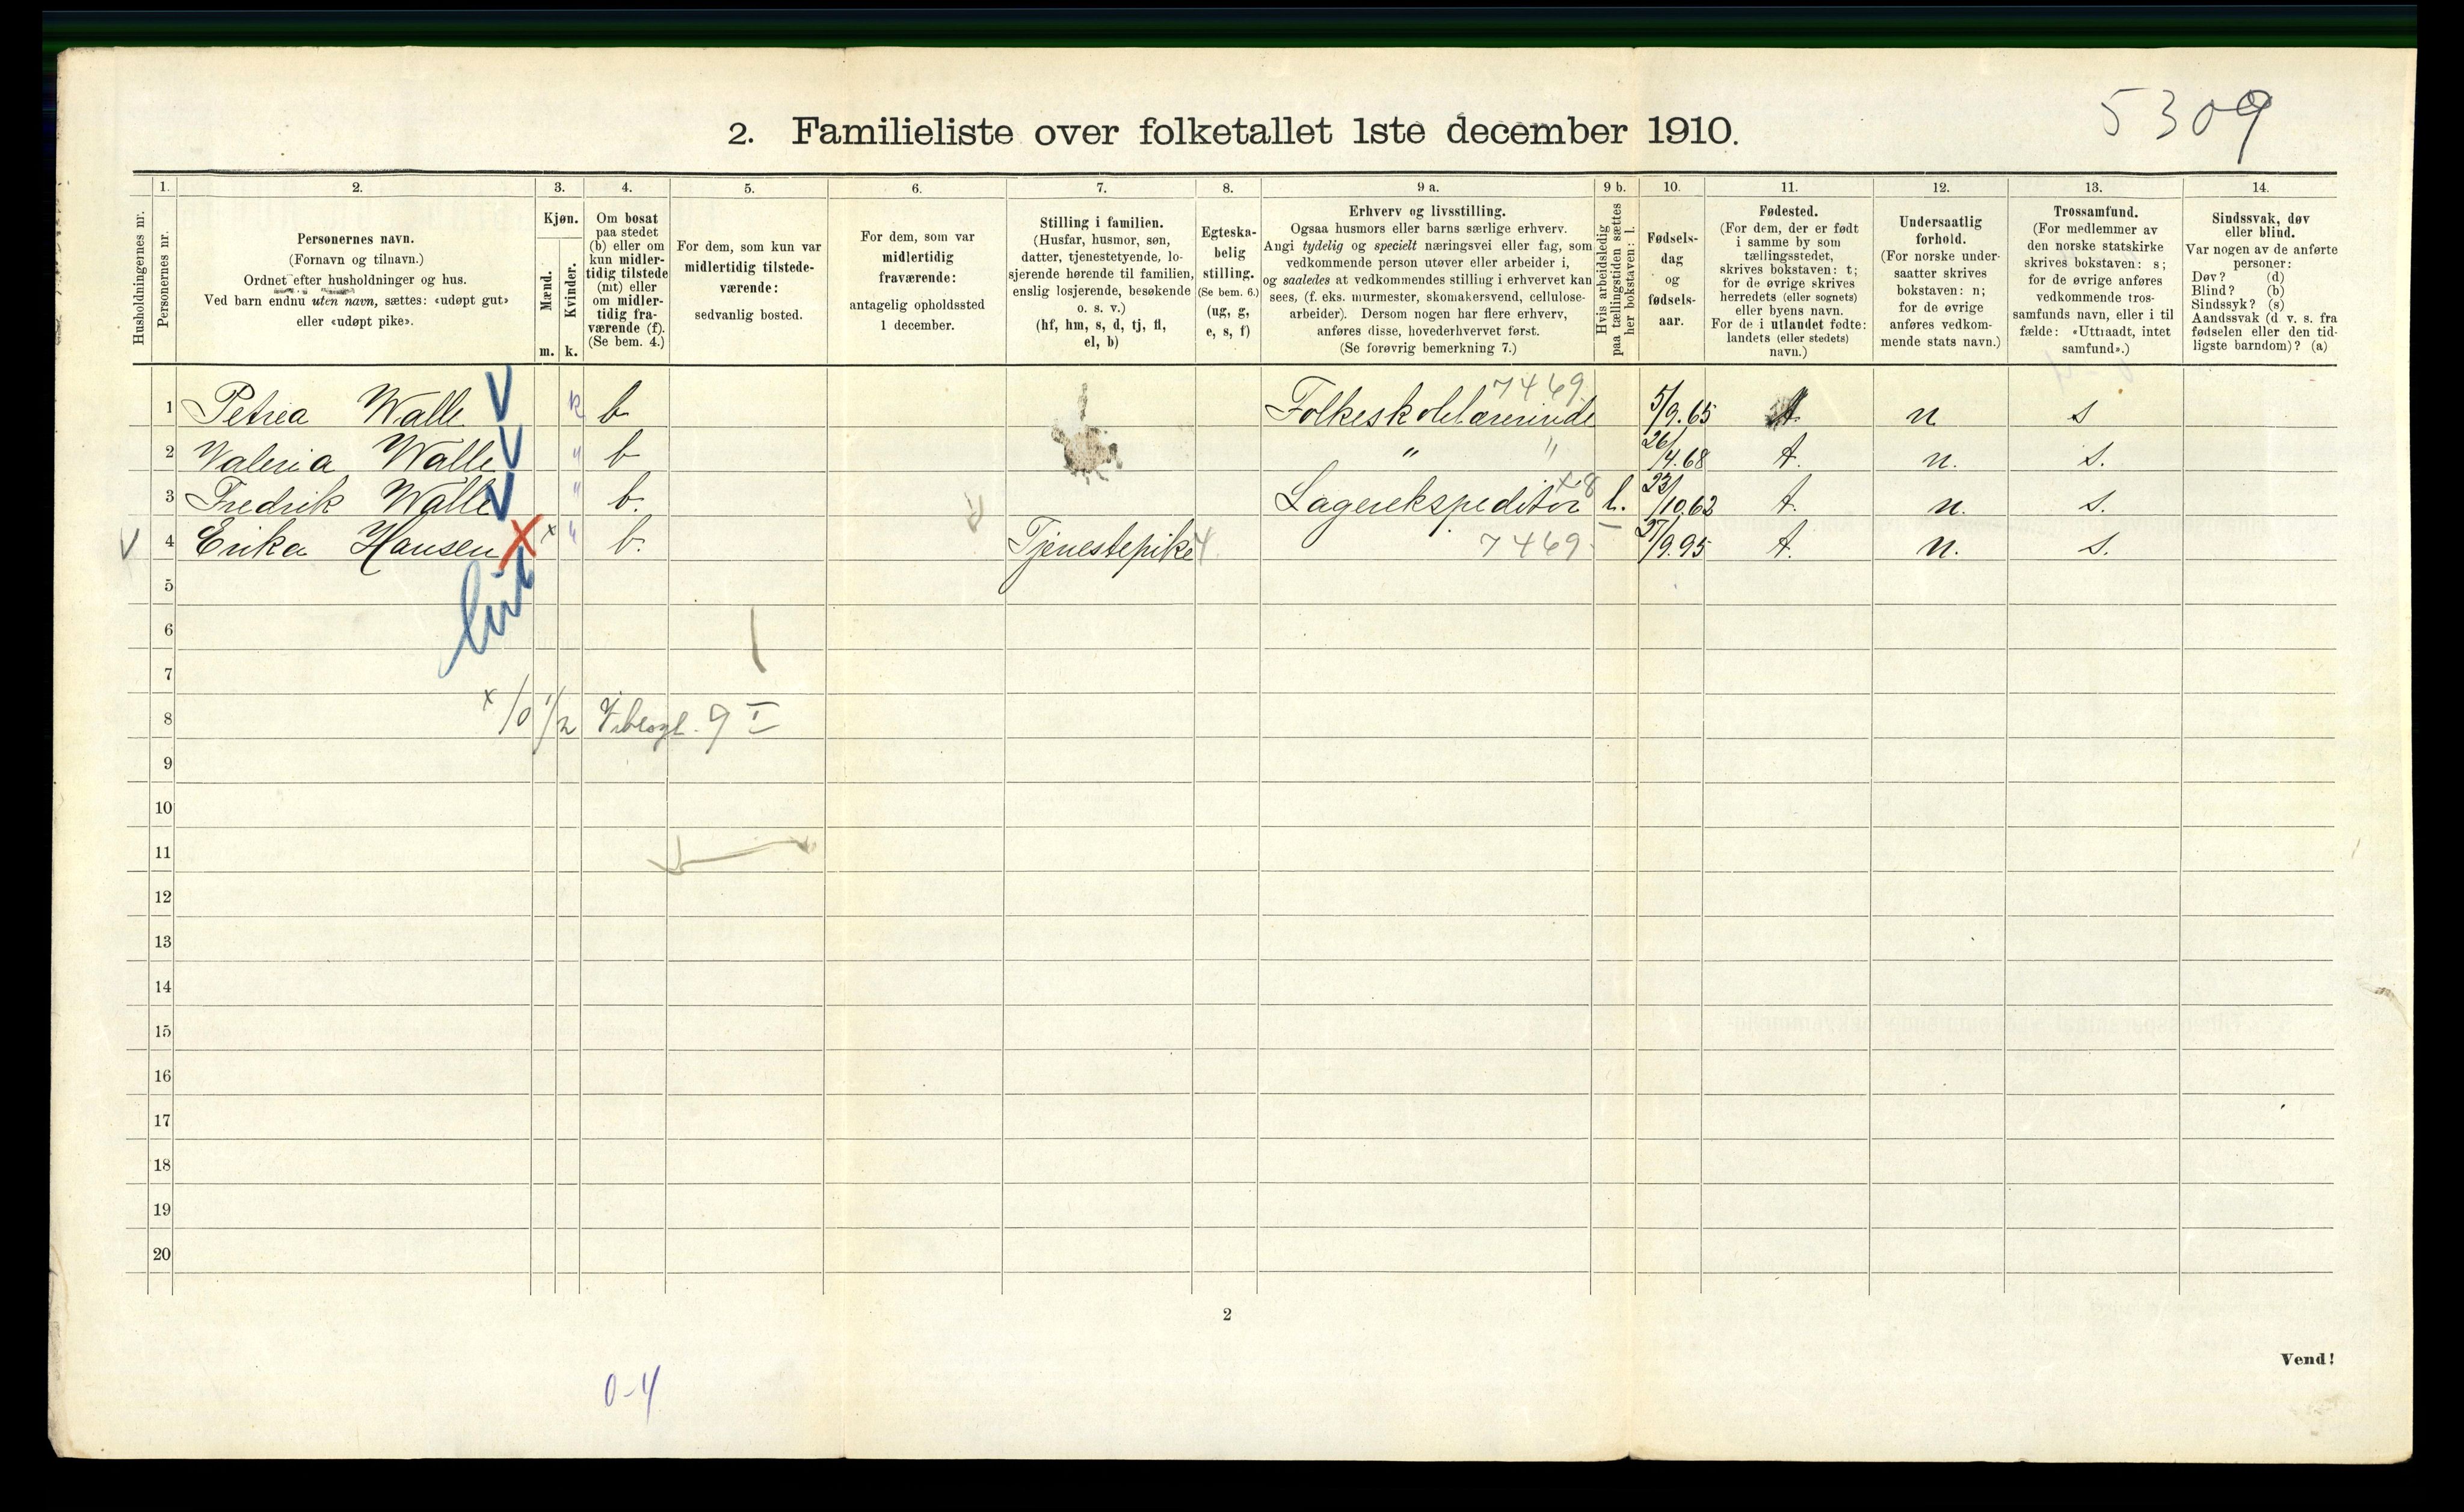 5309
2. Familieliste over folketallet 1ste december 1910.
1. 2. 3. 4. 5. 6. 7. 8. 9 a. 9 b. 10. 11. 12. 13. 14.
Husholdningernes nr.
Personernes nr.
Personernes navn.
(Fornavn og tilnavn.)
Ordnet efter husholdninger og hus.
Ved barn endnu uten navn, sættes: «udøpt gut»
eller «udøpt pike».
Kjøn.
Mænd.
Kvinder.
m. k.
Om bosat
paa stedet
(b) eller om
kun midler-
tidig tilstede
(mt) eller
om midler-
tidig fra-
værende (f).
(Se bem. 4.)
For dem, som kun var
midlertidig tilstede-
værende:
sedvanlig bosted.
For dem, som var
midlertidig
fraværende:
antagelig opholdssted
1 december.
Stilling i familien.
(Husfar, husmor, søn,
datter, tjenestetyende, lo-
sjerende hørende til familien,
enslig losjerende, besøkende
o. s. v.)
(hf, hm, s, d, tj, fl,
el, b)
Egteska-
belig
stilling.
(Se bem. 6.)
(ug, g,
e, s, f)
Erhverv og livsstilling.
Ogsaa husmors eller barns særlige erhverv.
Angi tydelig og specielt næringsvei eller fag, som
vedkommende person utøver eller arbeider i,
og saaledes at vedkommendes stilling i erhvervet kan
sees, (f. eks. murmester, skomakersvend, cellulose-
arbeider). Dersom nogen har flere erhverv,
anføres disse, hovederhvervet først.
(Se forøvrig bemerkning 7.)
Hvis arbeidsledig
paa tællingstiden sættes
her bokstaven: l.
Fødsels-
dag
og
fødsels-
aar.
Fødested.
(For dem, der er født
i samme by som
tællingsstedet,
skrives bokstaven: t;
for de øvrige skrives
herredets (eller sognets)
eller byens navn.
For de i utlandet fødte:
landets (eller stedets)
navn.)
Undersaatlig
forhold.
(For norske under-
saatter skrives
bokstaven: n;
for de øvrige
anføres vedkom-
mende stats navn.)
Trossamfund.
(For medlemmer av
den norske statskirke
skrives bokstaven: s;
for de øvrige anføres
vedkommende tros-
samfunds navn, eller i til
fælde: «Uttraadt, intet
samfund».)
Sindssvak, døv
eller blind.
Var nogen av de anførte
personer:
Døv? (d)
Blind? (b)
Sindssyk? (s)
Aandssvak (d v. s. fra
fødselen eller den tid-
ligste barndom)? (a)
7469
1 Petrea Walle V k b Folkeskolelærerinde 5/9.65 t. n s
2 Valeria Walle V " b " " 26/4.68 t. n. s.
3 Fredrik Walle V " b. Lagerekspeditør x8 l. 23/10.62 t. n. s.
V 4 Erika Hansen X x " b. Tjenestepike 7469 27/9.95 t. n. s.
5
6
7
8 x/0 1/2 9 I
9
10
11
12
13
14
15
16
17
18
19
20
2
Vend!
0-4